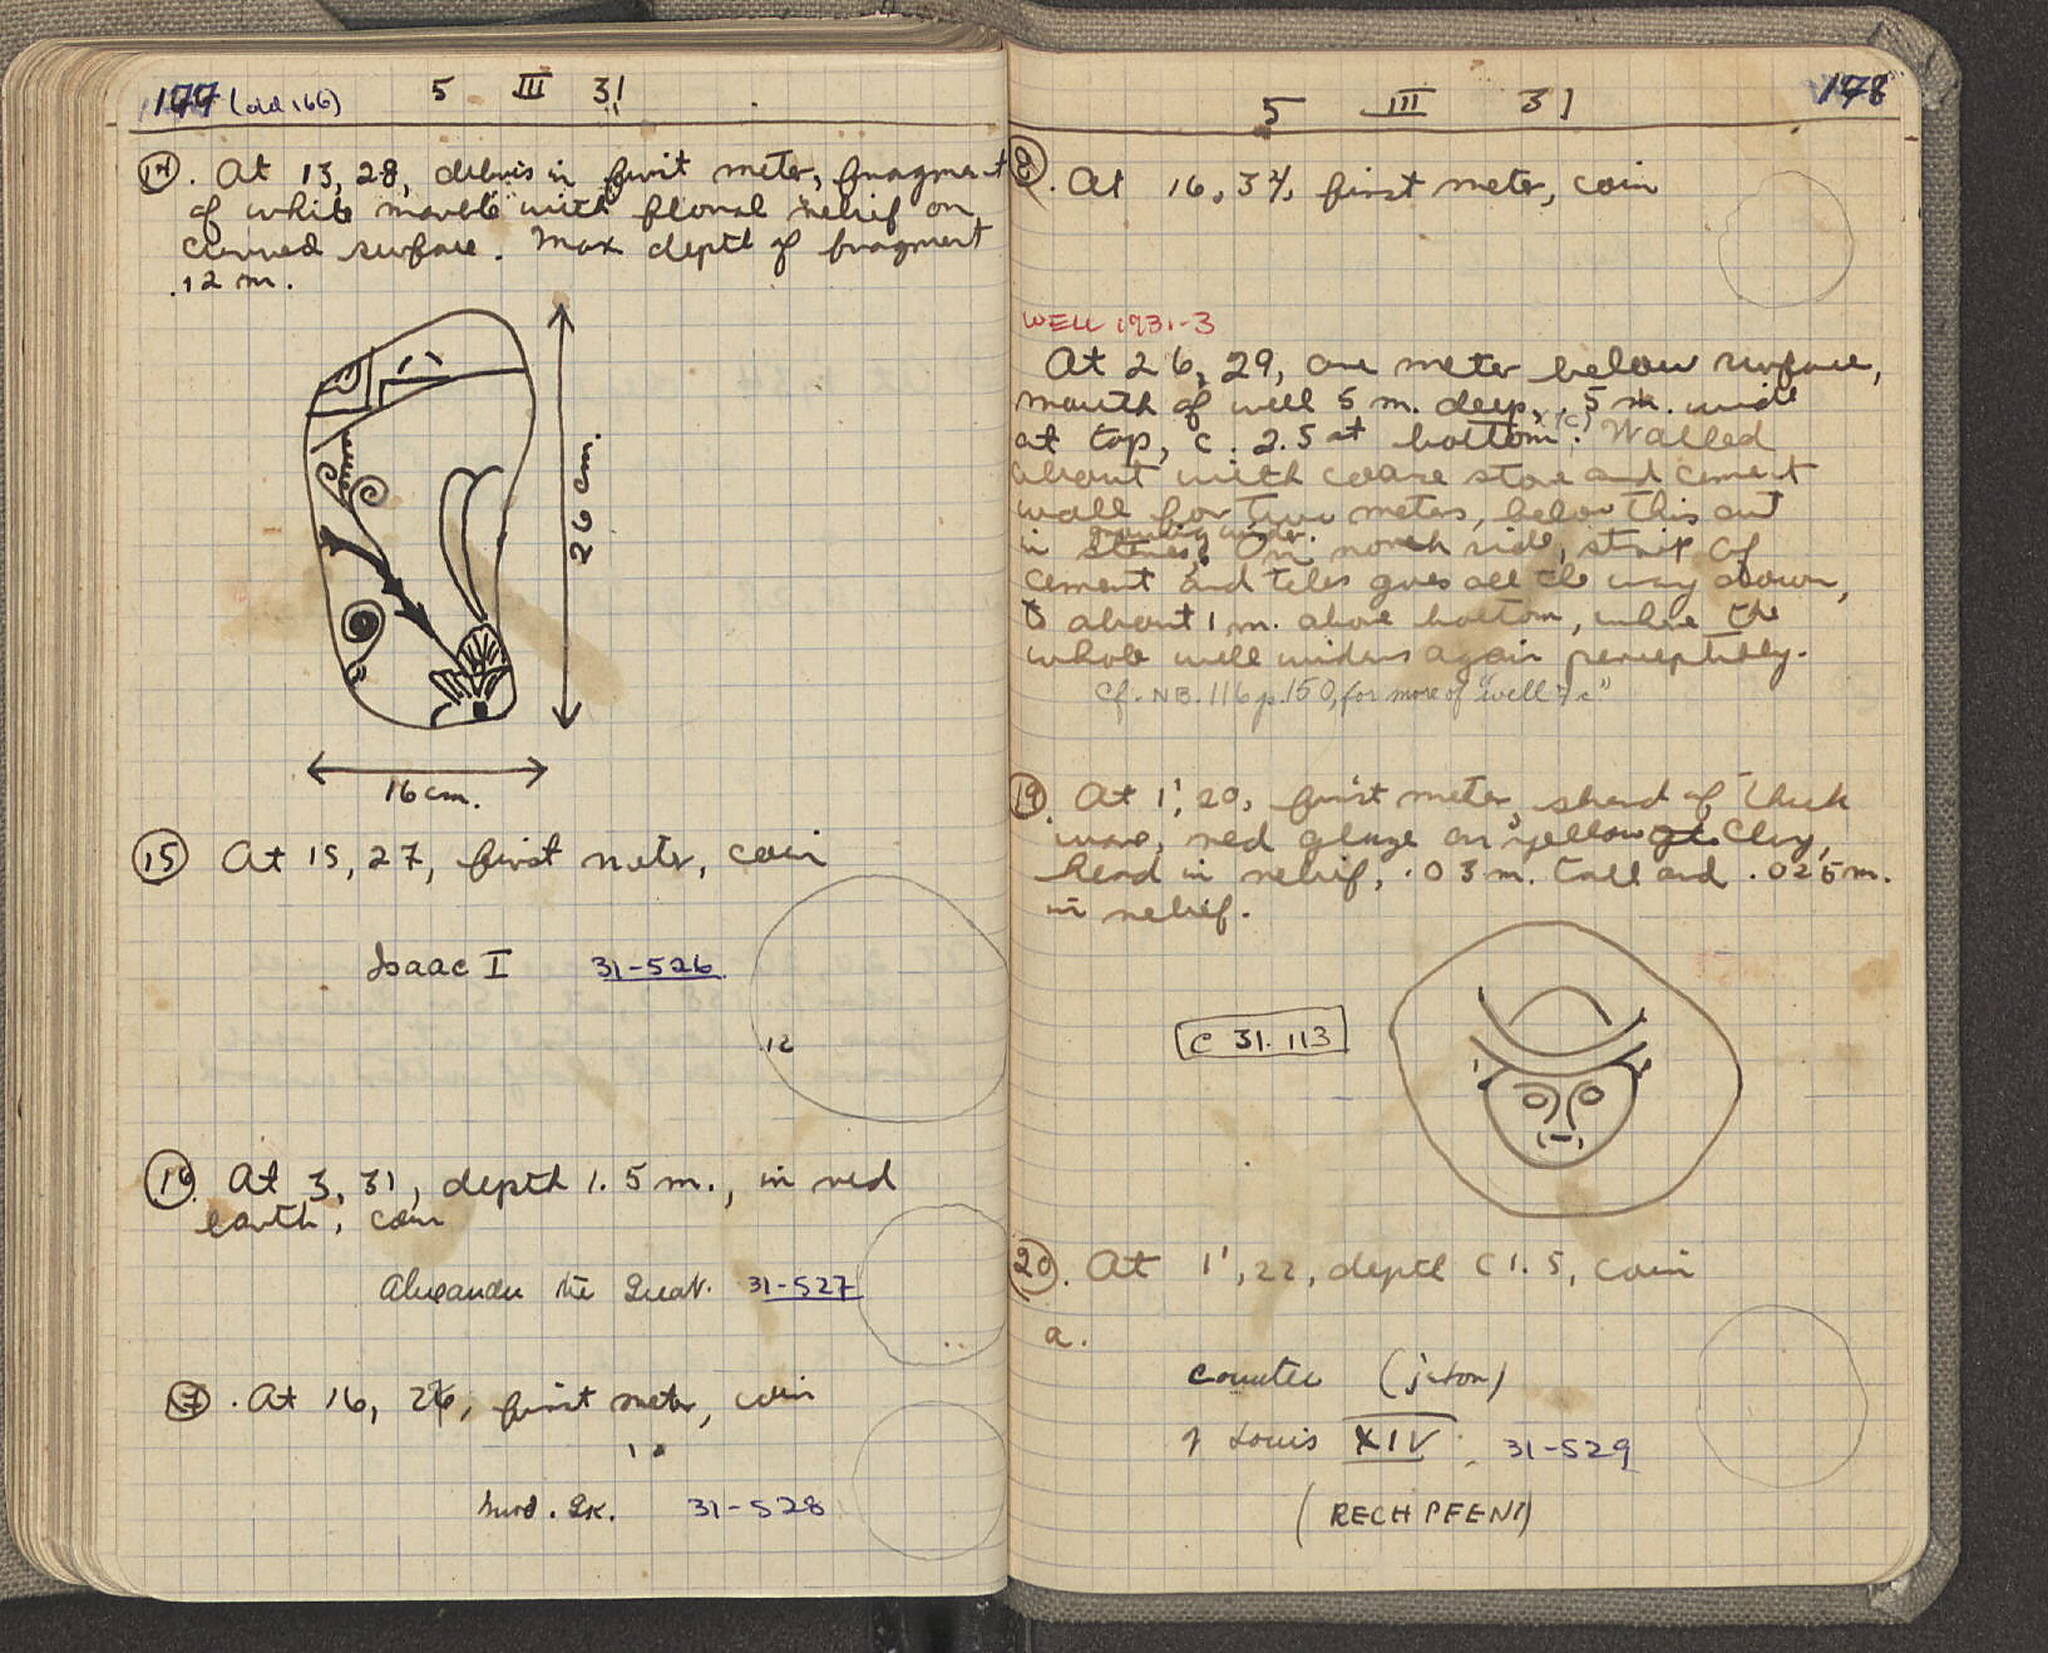 177 (old 166) 5 III 31
14. At 13, 28, debris in first meter, fragment
of white marble with floral relief on
curved surface. Max depth of fragment
.12 m.
26 cm.
16 cm.
15 At 15, 27, first meter, coin
Isaac I 31-526
.12
16. At 3, 31, depth 1.5 m., in red
earth, coin
Alexander the Great. 31-527
17. At 16, 26, first meter, coin
Mod. Gk. 31-528
5 III 31 178
At 16, 34, first meter, coin
WELL 1931-3
At 26, 29, one meter below surface,
mouth of well 5 m. deep, .5 m. wide
at top, c. 2.5 at bottom. Walled
about with coarse stone and cement
wall for two meters, below this cut
in stereo. On north side, strip of
cement and tiles goes all the way down,
to about 1 m. above bottom, where the
whole well widens again perceptibly.
Cf. NB. 116 p. 150, for more of "well
19. At 1', 20, first meter, sherd of thick
ware, red glaze on yellow clay,
head in relief, .03 m. tall and .025 m.
in relief.
C 31. 113
20. At 1', 22, depth c 1.5, coin
a.
Counter (jeton)
of Louis XIV. 31-529
(RECHPFENI)